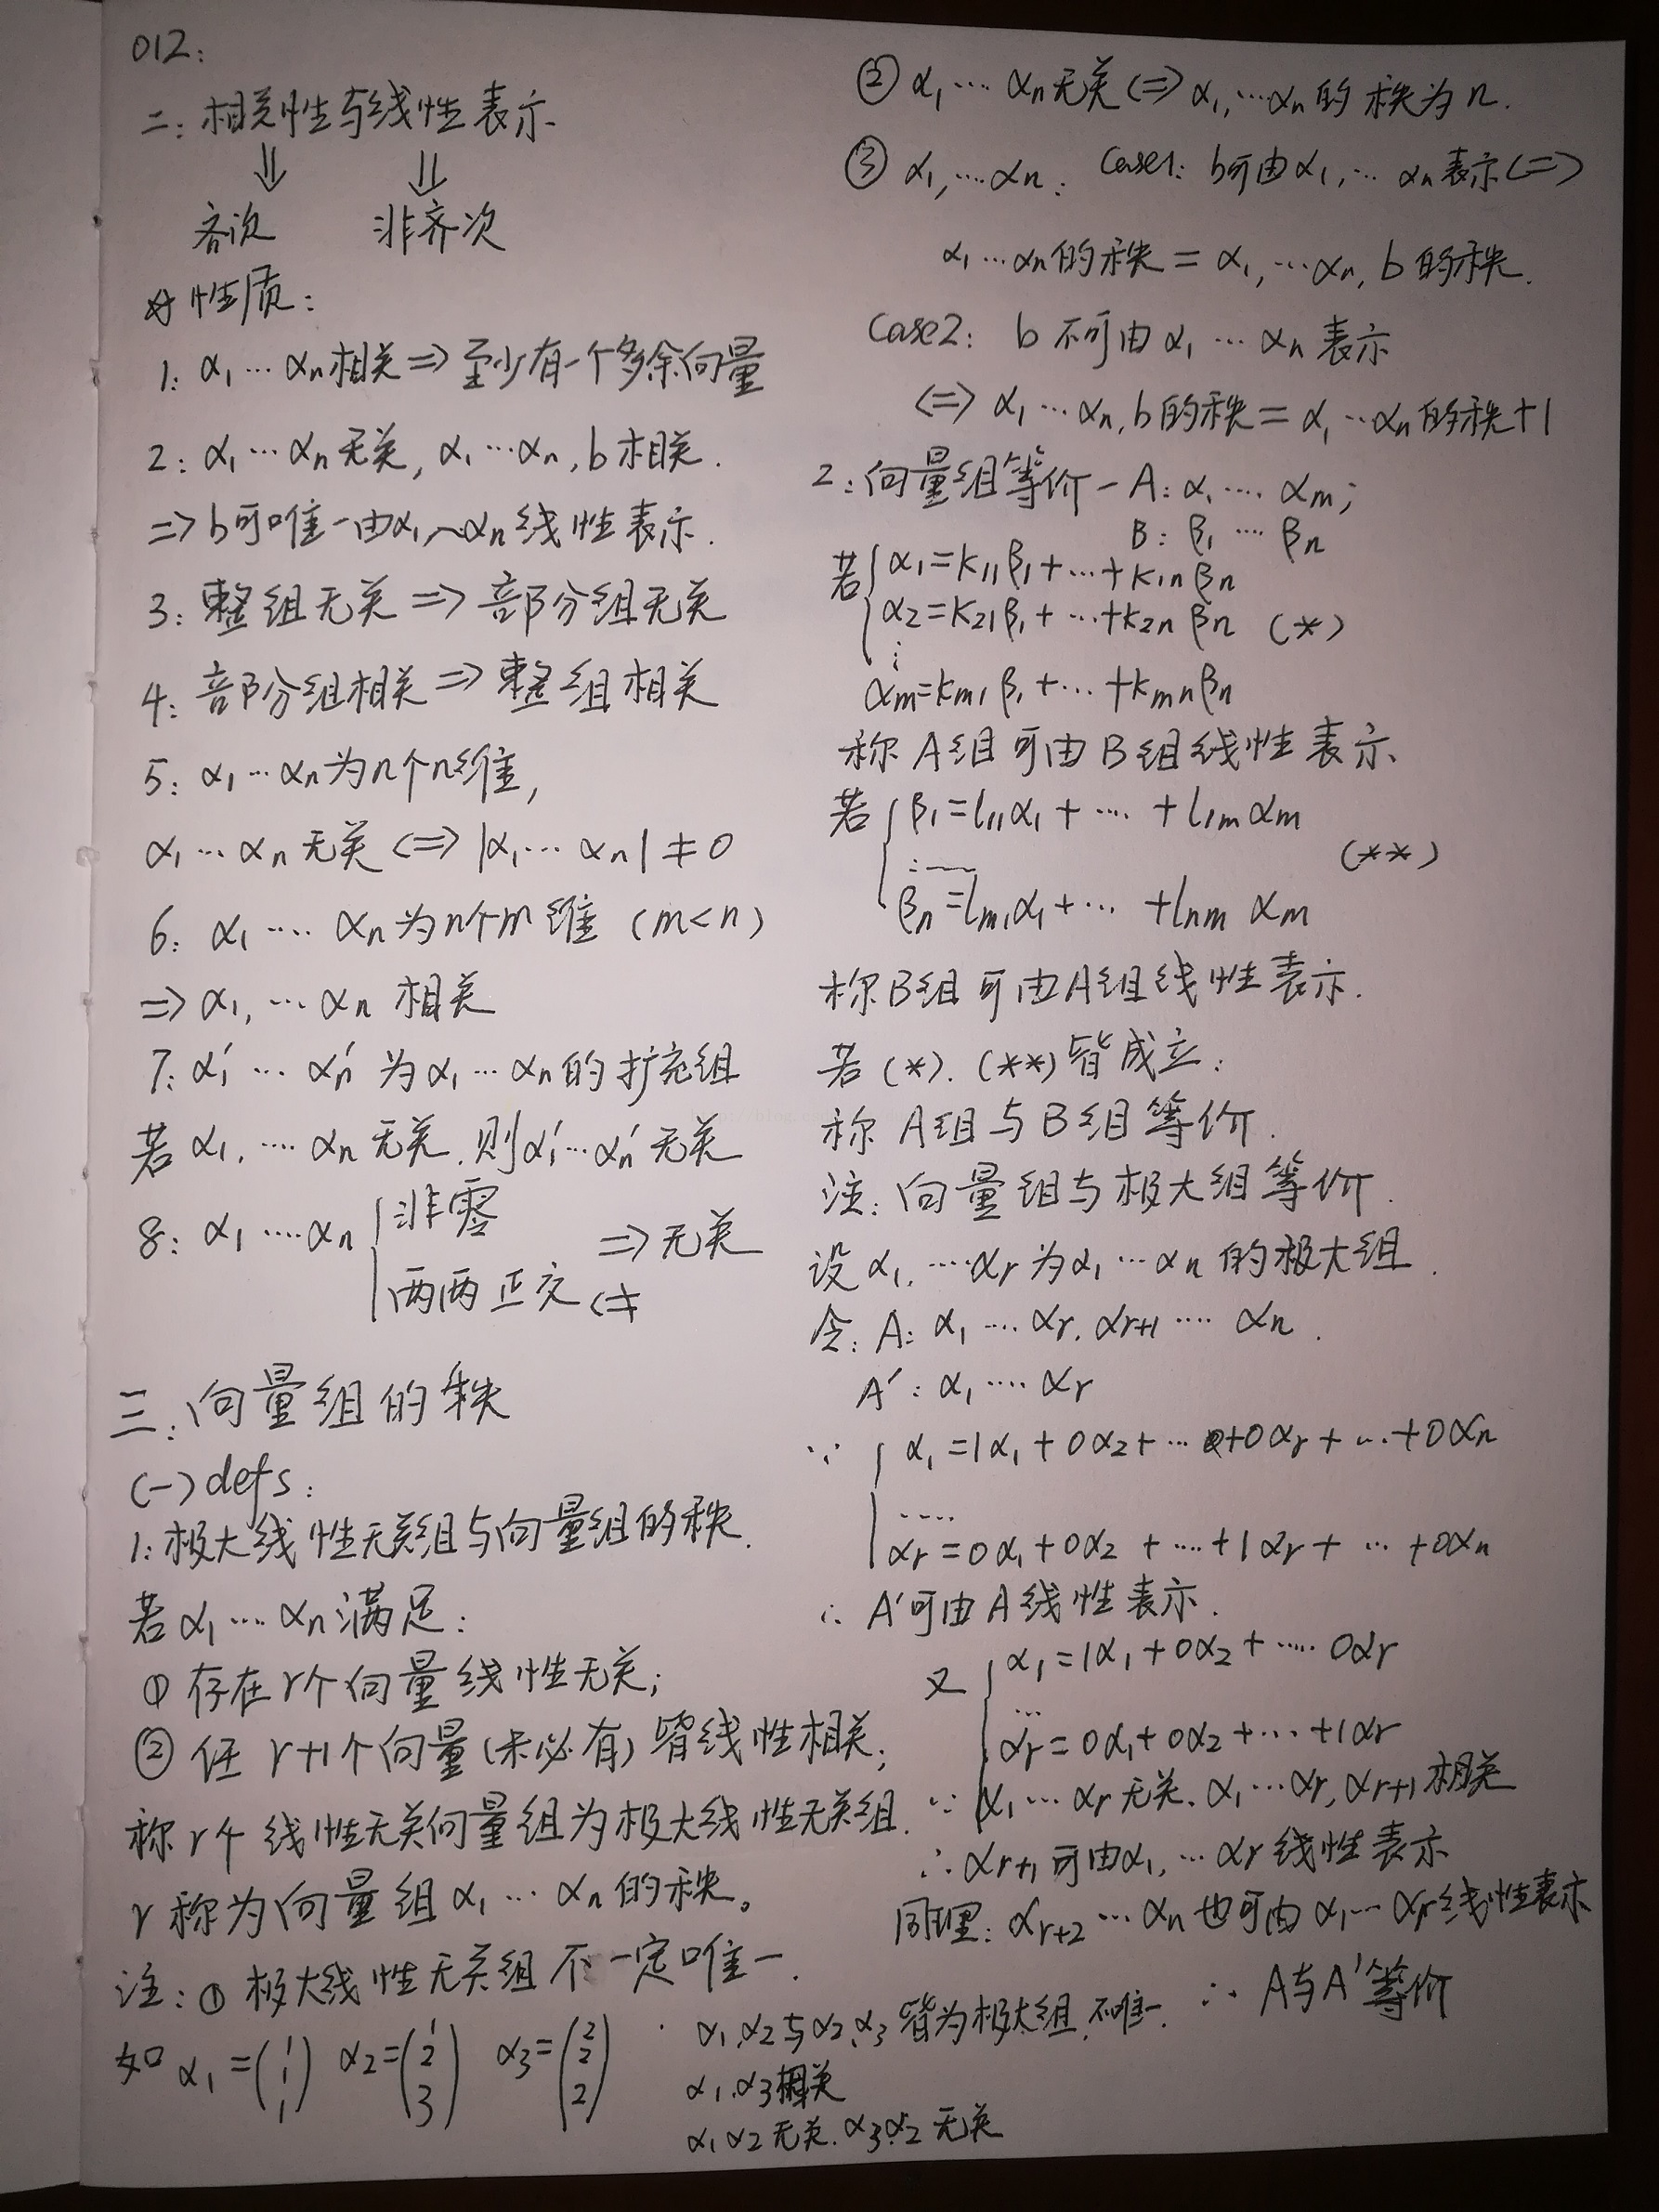 012:
二: 相关性与线性表示
⇓ ⇓
齐次 非齐次
性质:
1: α₁…αₙ相关⇒至少有一个多余向量
2: α₁…αₙ无关, α₁…αₙ, b相关.
⇒b可唯一由α₁~αₙ线性表示.
3: 整组无关⇒部分组无关
4: 部分组相关⇒整组相关
5: α₁…αₙ为n个n维,
α₁…αₙ无关⇔|α₁…αₙ|≠0
6: α₁…αₙ为n个m维 (m<n)
⇒α₁,…αₙ 相关
7: α₁'…αₙ' 为α₁…αₙ的扩充组
若α₁,…αₙ无关,则α₁'…αₙ'无关
8: α₁…αₙ { 非零
两两正交 ⇒无关
⇍
三. 向量组的秩
(一) defs:
1: 极大线性无关组与向量组的秩.
若α₁…αₙ满足:
① 存在r个向量线性无关;
② 任 r+1个向量(未必有)皆线性相关;
称r个线性无关向量组为极大线性无关组.
r称为向量组α₁…αₙ的秩。
注: ① 极大线性无关组不一定唯一.
如 α₁=(1 1 1) α₂=(1 2 3) α₃=(2 2 2)
α₁,α₂与α₂,α₃皆为极大组,不唯一.
α₁,α₃相关
α₁α₂无关.α₃α₂无关
② α₁…αₙ无关⇔α₁,…αₙ的秩为n.
③ α₁,…αₙ: Case1: b可由α₁,…αₙ表示⇔
α₁…αₙ的秩=α₁,…αₙ,b的秩.
Case2: b不可由α₁…αₙ表示
⇔ α₁…αₙ,b的秩=α₁…αₙ的秩+1
2: 向量组等价-A: α₁…αm;
B: β₁…βn
若 { α₁=k₁₁β₁+…+k₁ₙβₙ
α₂=k₂₁β₁+…+k₂ₙβₙ (*)
⋮
αm=km₁β₁+…+kmnβn
称A组可由B组线性表示
若 { β₁=l₁₁α₁+…+l₁mαm
…… (**)
βn=lm₁α₁+…+lnmαm
称B组可由A组线性表示.
若(*).(**)皆成立:
称A组与B组等价.
注: 向量组与极大组等价.
设α₁,…αr为α₁…αₙ的极大组.
令: A: α₁…αr, αr+1…αn.
A': α₁…αr
∵ { α₁=1α₁+0α₂+…+0αr+…+0αn
……
αr=0α₁+0α₂+…+1αr+…+0αn
∴ A'可由A线性表示.
又 { α₁=1α₁+0α₂+…0αr
…
αr=0α₁+0α₂+…+1αr
∵ α₁…αr无关, α₁…αr,αr+1相关
∴ αr+1可由α₁,…αr线性表示
同理: αr+2…αn也可由α₁…αr线性表示
∴ A与A'等价